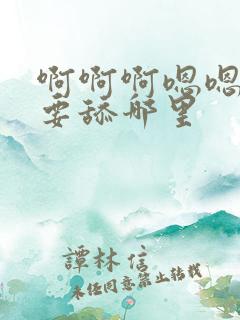 啊啊啊嗯嗯
要舔那里
譚林信
未经同意禁止转载